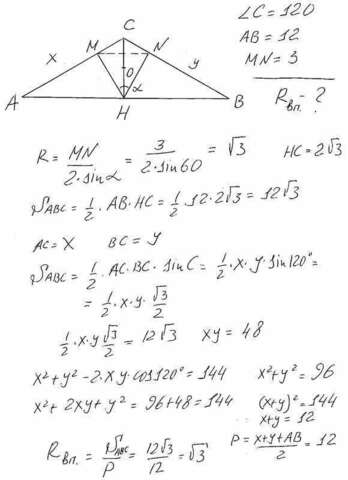 C
∠C = 120
x M N y AB = 12
O MN = 3
α
A H B Rвп. - ?
R = MN / (2·sin α) = 3 / (2·sin 60) = √3 HC = 2√3
S_ABC = 1/2 · AB · HC = 1/2 · 12 · 2√3 = 12√3
AC = x BC = y
S_ABC = 1/2 · AC · BC · sin C = 1/2 · x · y · sin 120° =
= 1/2 · x · y · √3/2
1/2 · x · y √3/2 = 12√3 xy = 48
x² + y² - 2·xy·cos 120° = 144 x² + y² = 96
x² + 2xy + y² = 96 + 48 = 144 (x+y)² = 144
x+y = 12
Rвп. = S_ABC / P = 12√3 / 12 = √3 P = (x+y+AB) / 2 = 12